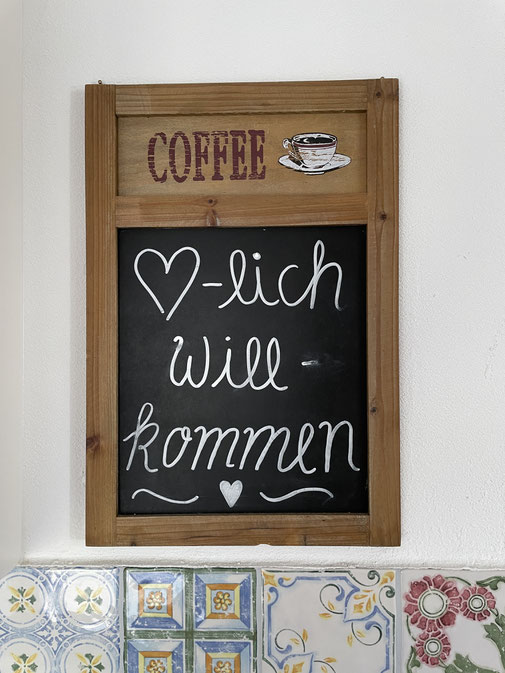 COFFEE
♡-lich
Will-
kommen